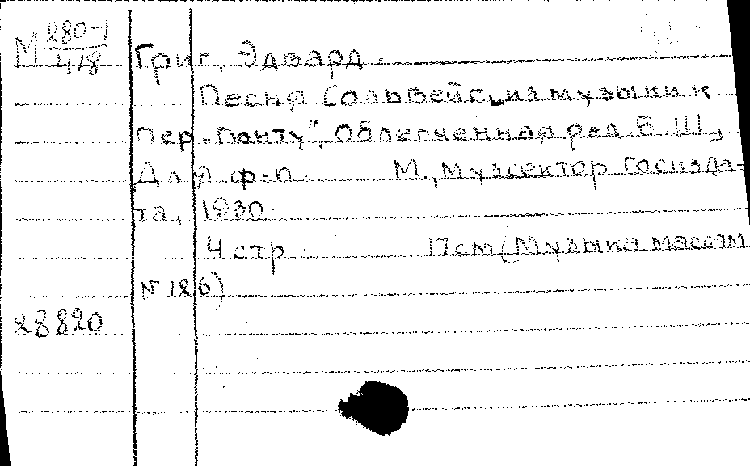 М 280-1/418
Григ, Эдвард.
Песня Сольвейг, из музыки к
Пер-Гюнту", Облегченная ред. Е Ш,
Для ф-п М., Музсектор Госизда-
та, 1930
4 стр 17см (Музыка массам
№ 186)
х8820